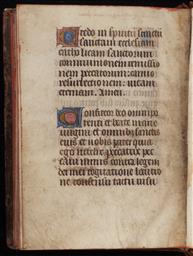 Credo in spiritu sancti
sanctam ecclesiam
catholicam sanctorum
communionem remissio
nem peccatorum carnis
resurrectionem vitam
eternam Amen
Confiteor deo omnipo
tenti et beate marie
virgini et omnibus sanctis
eius et vobis pater quia
ego peccavi
legem
dei mei cogitatione locutio
ne consensu tactu visu